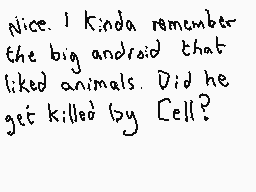 Nice. I kinda remember
the big android that
liked animals. Did he
get killed by Cell?